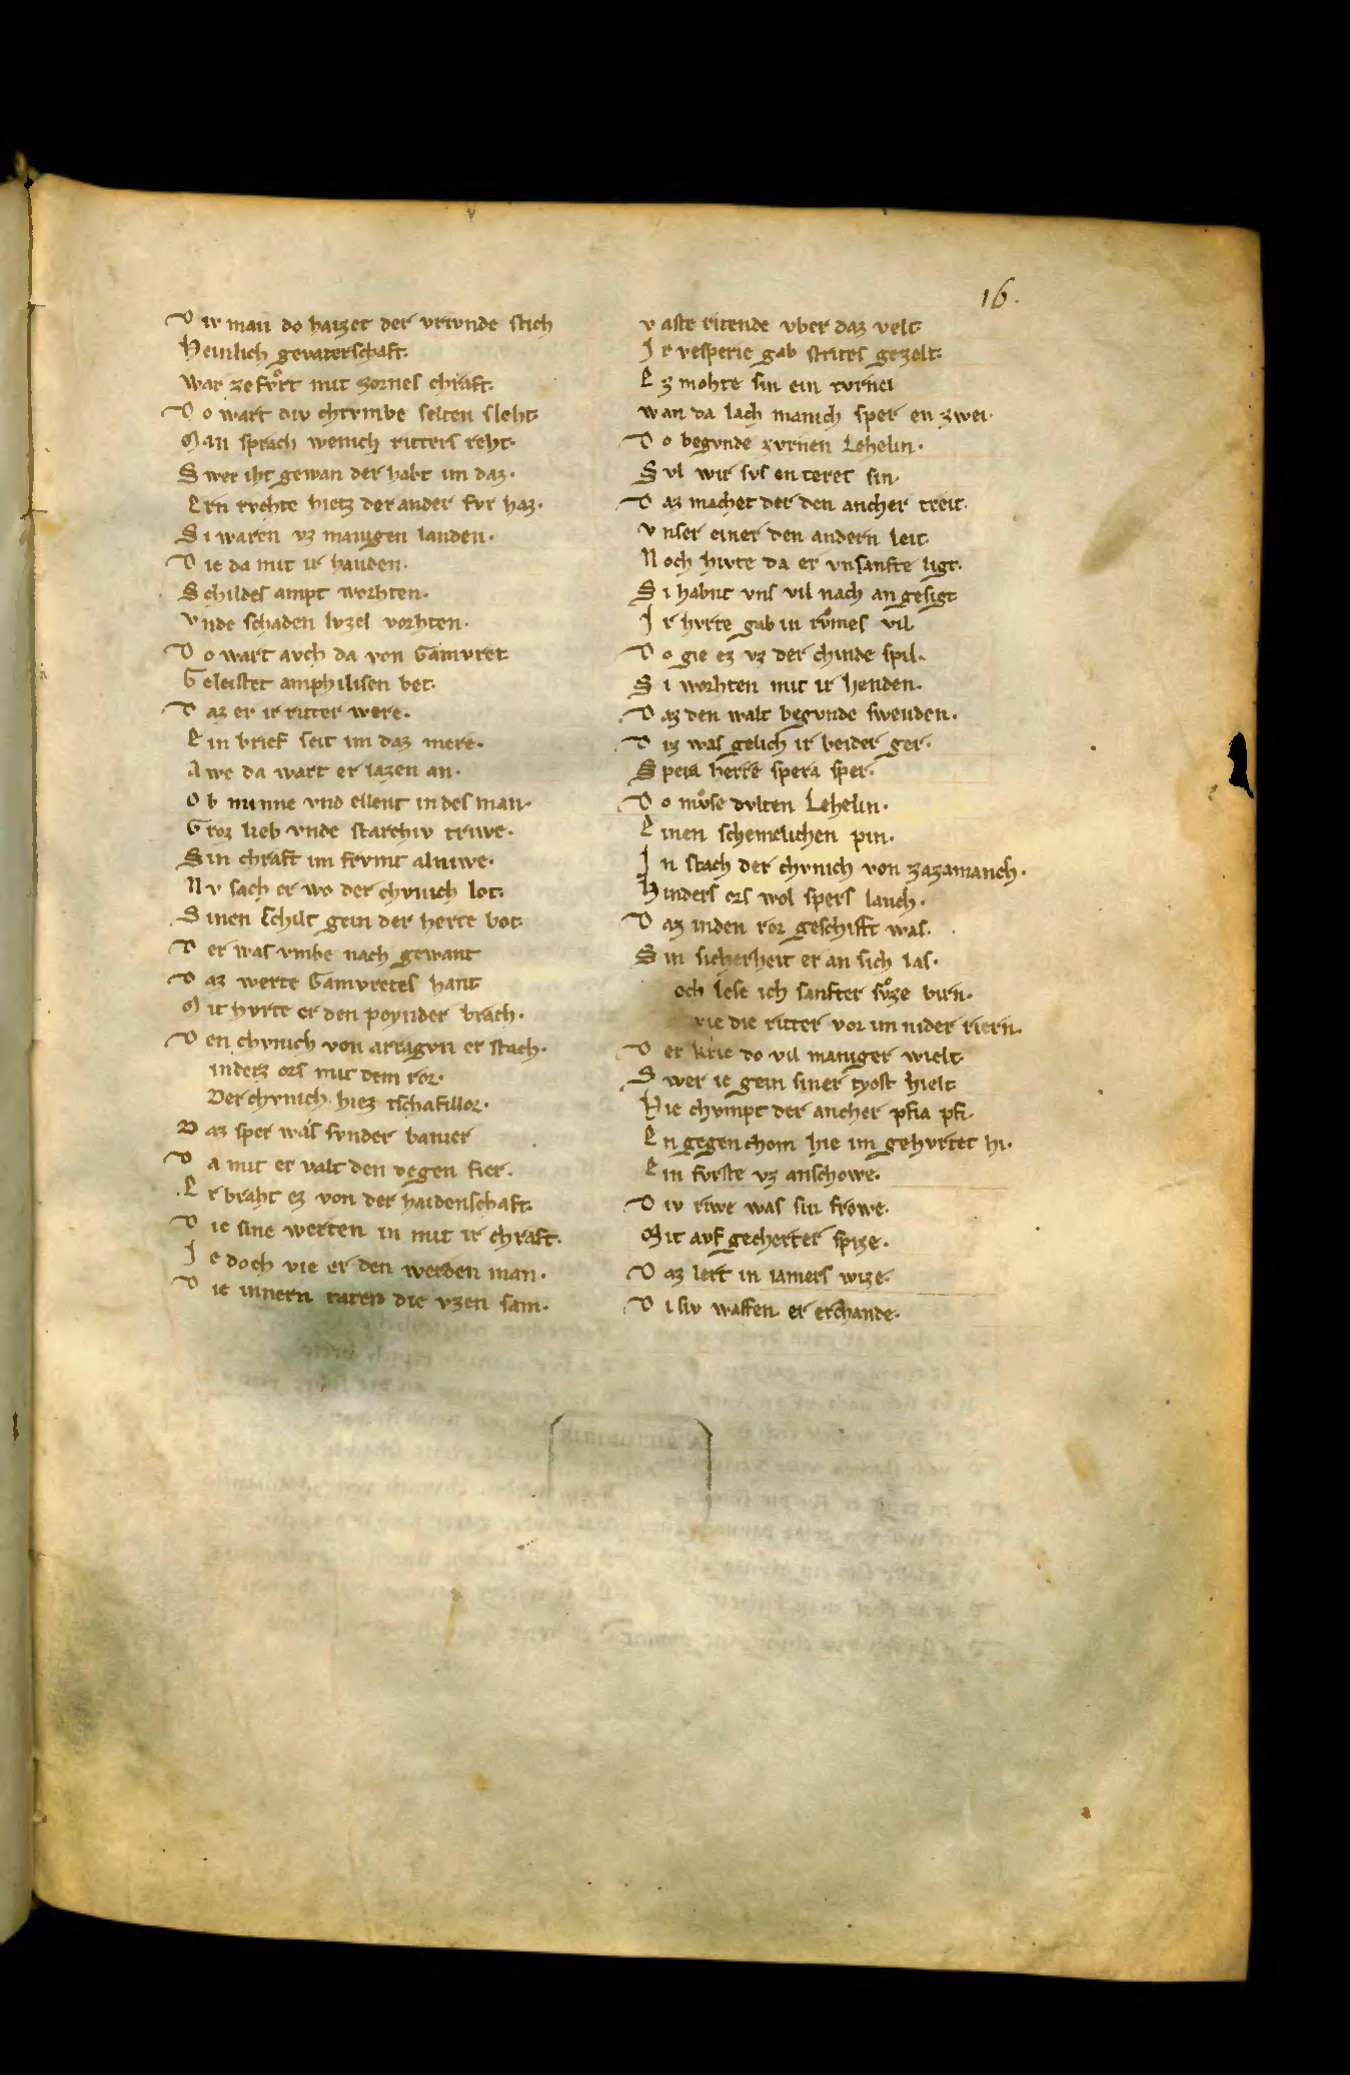 16.
D iv man do haizet der vrivnde stich
Heinlich gevaterschaft.
war zefvͦrt mit zornes chraft.
D o wart div chrvmbe selten sleht.
M an sprach wenich ritters reht.
S wer iht gewan der habt im daz.
E rn rvchte hietz der ander fvr haz.
S i waren vz manigen landen.
D ie da mit ir handen.
S childes ampt worhten.
v nde schaden lvzel vorhten.
D o wart avch da von Gamvret
G eleistet amphilisen bet.
D az er ir ritter were.
E in brief seit im daz mere.
A we da wart er lazen an.
O b minne vnd ellent in des man.
G roz lieb vnde starchiv triwe.
S in chraft im frvmt alniwe.
N v sach er wo der chvnich lot.
S inen schilt gein der herte bot.
D er was vmbe nach gewant
D az werte Gamvretes hant
M it hvrte er den poynder brach.
D en chvnich von arragvn er stach.
inderz ors mit dem ror.
Der chvnich hiez tschafillor.
D az sper was svnder banier
D a mit er valt den degen fier.
E r braht ez von der haidenschaft.
D ie sine werten in mit ir chraft.
J e doch vie er den werden man.
D ie innern taten die vzen sam.
v aste ritende vber daz velt.
J r vesperie gab strites gezelt.
E z mohte sin ein tvrnei
wan da lach manich sper en zwei.
D o begvnde zvrnen Lehelin.
S vl wir svs enteret sin.
D az machet der den ancher treit.
v nser einer den andern leit.
N och hivte da er vnsanfte ligt.
S i habnt vns vil nach an gesigt
J r hvrte gab in rvͦmes vil
D o gie ez vz der chinde spil.
S i worhten mit ir henden.
D az den walt begvnde swenden.
D iz was gelich ir beider ger.
S pera herre spera sper.
D o mvͦse dvlten Lehelin.
E inen schemelichen pin.
J n stach der chvnich von zazamanch.
H inders ors wol spers lanch.
D az inden ror geschift was.
S in sicherheit er an sich las.
och lese ich sanfter svͦze birn.
vie die ritter vor im nider riern.
D er krie do vil maniger wielt.
S wer ie gein siner tyost hielt
H ie chvmpt der ancher pfia pfi.
E n gegen chom hie im gehvrtet hi.
E in fvrste vz anschowe.
D iv riwe was sin frowe.
M it avf gecherter spize.
D az lert in iamers wize.
D i siv waffen er erchande.